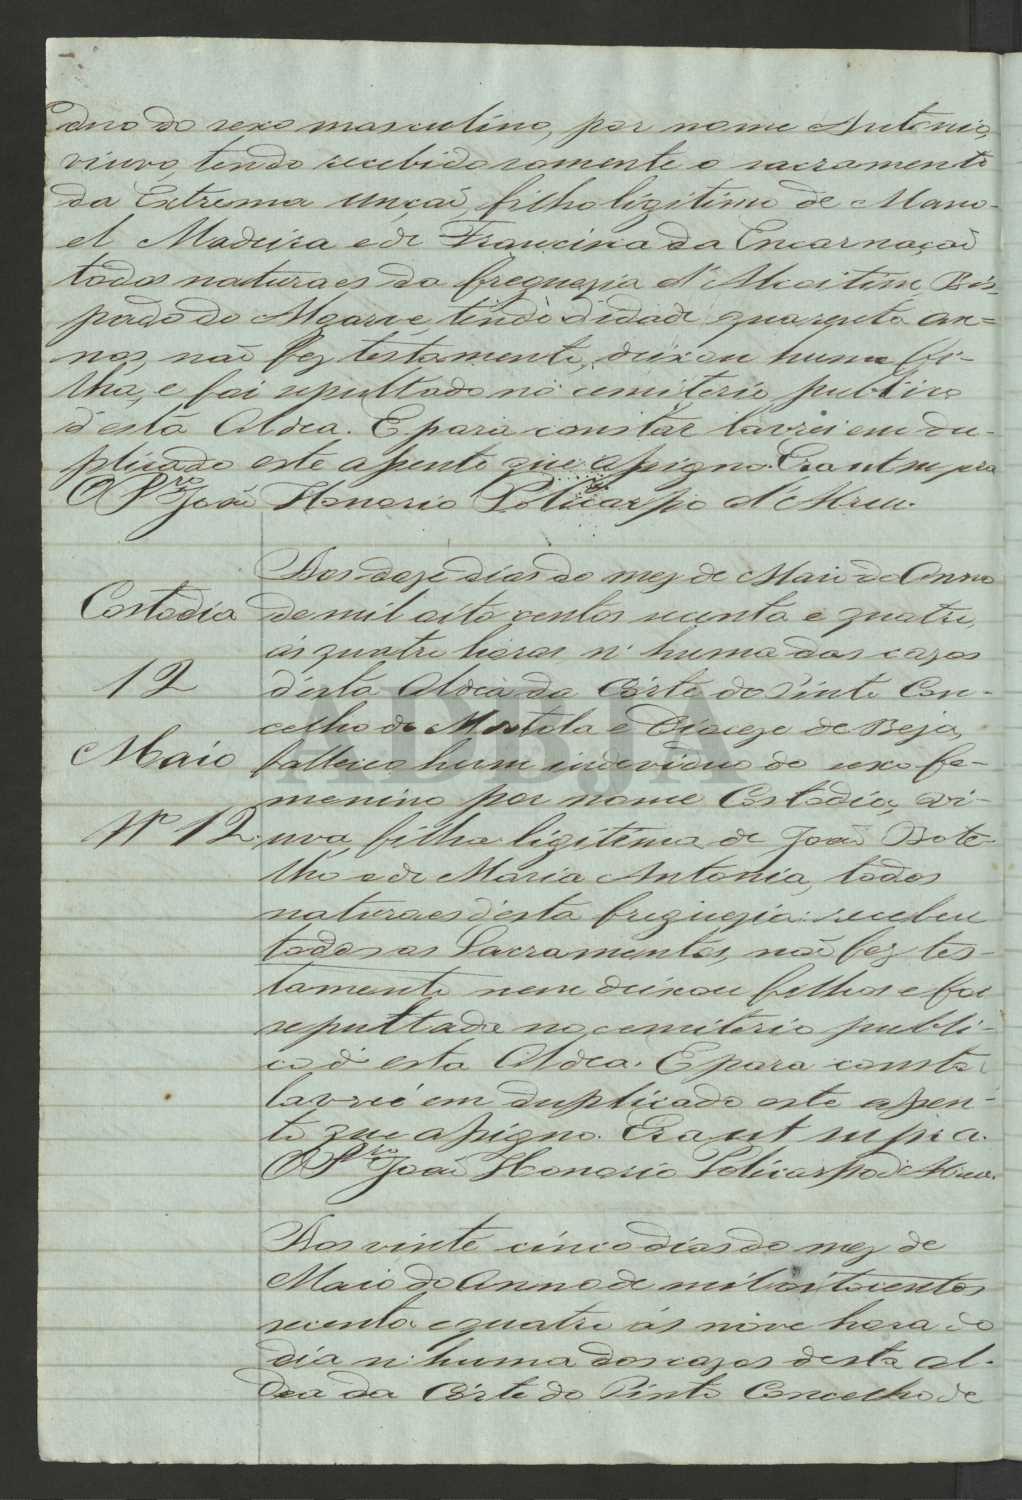 duo do sexo masculino, por nome Antonio,
viuvo, tendo recebido somente o sacramento
da Extrema unçaõ, filho ligitimo de Mano-
el Madeira e de Francisca da Encarnaçaõ
todos naturaes da freguezia d'Alcoitim, Bis-
pado do Algarve, tendo d'idade quarenta an=
nos, naõ fez testamento, deixou huma fi-
lha, e foi sepultado no cemiterio publico
d'esta Aldea. E para constar lavrei em du-
plicado este assento que assigno. Era ut supra
O P.ro Joaõ Honorio Policarpo d'Abreu.
Costodia
12
Maio
Nº 12
Aos doze dias do mez de Maio do Anno
de mil oito centos secenta e quatro,
ás quatro horas n'huma das cazas
d'esta Aldea da Côrte do Pinto Con-
celho de Mertola e Dioceze de Beja,
falleceo hum individuo do sexo fe-
menino por nome Costodia, vi-
uva, filha ligitima de Joaõ Bote-
lho e de Maria Antonia, todos
naturaes d'esta freguezia: recebeu
todos os Sacramentos, naõ fez tes-
tamento nem deixou filhos e foi
sepultada no cemiterio publi-
co d'esta Aldea. E para constar
lavrei em duplicado este assen-
to que assigno. Era ut supra.
O P.ro Joaõ Honorio Policarpo d'Abreu.
Aos vinte cinco dias do mez de
Maio do Anno de mil oitocentos
secenta e quatro ás nove hora do
dia n'huma das cazas desta Al-
dea da Côrte do Pinto Concelho de
ADBJA